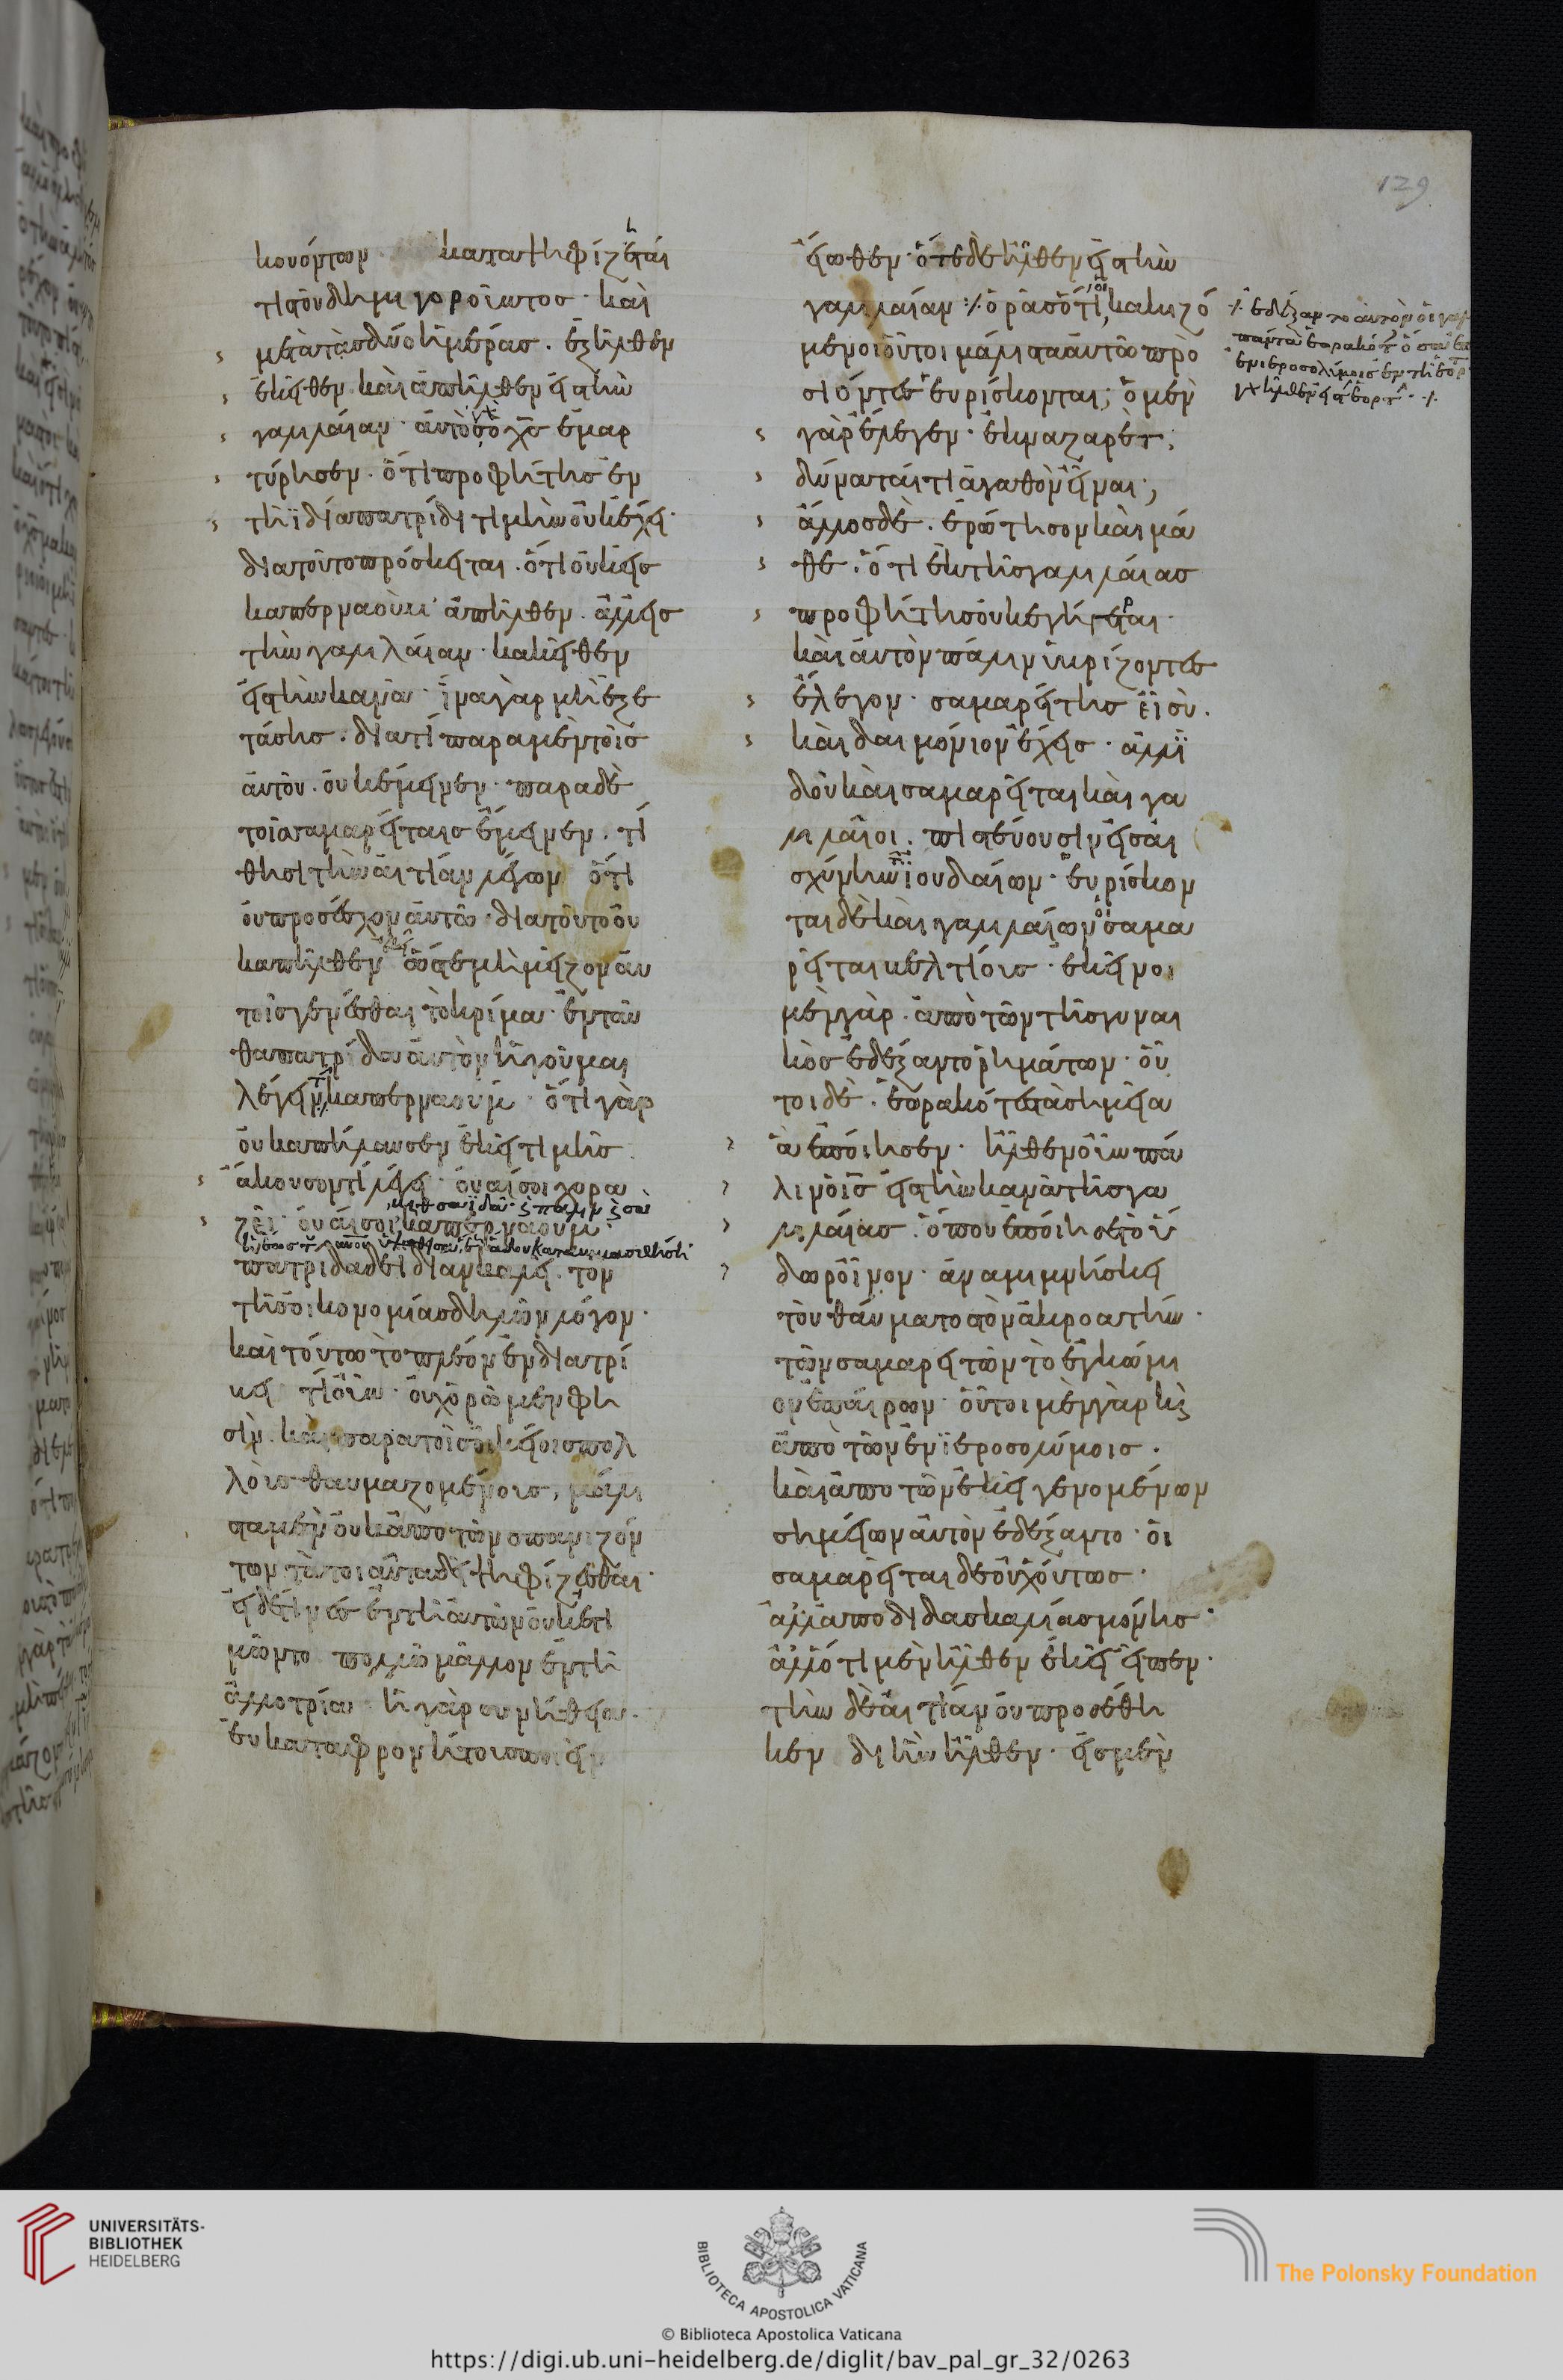 κουόντων καταψηφίζεται
τις τοῦ δημηγοροῦντος· καὶ
μετὰ τὰς δύο ἡμέρας. ἐξῆλθεν
ἐκεῖθεν καὶ ἀπῆλθεν εἰς τὴν
γαλιλαίαν· αὐτὸς γὰρ ὁ ις ἐμαρ
τύρησεν· ὅτι προφήτης ἐν
τῆ ἰδία πατρίδι τιμὴν οὐκ ἔχει·
διατοῦτο πρόσκειται. ὅτι οὐκ εἰς
καπερναοὺμ ἀπῆλθεν. ἀλλ' εἰς
τὴν γαλιλαίαν· κακεῖθεν
εἰς τὴν κανᾶ· ἵνα γὰρ μὴ ἐξε
τάσης. διατί παρα μὲν τοῖς
αὐτοῦ. οὐκ ἔμεινεν· παρα δὲ
τοῖς σαμαρείταις ἔμεινεν. τί
θησι τὴν αἰτίαν λέγων ὅτι
οὐ προσεῖχον αὐτῶ· διατοῦτο οὐ
κ ἀπῆλθεν ὥστε μὴ μεῖζον αὐ
τοῖς γενέσθαι τὸ κρίμα· ἐνταῦ
θα πατρίδα αὐτὸν ἡγοῦμαι
λέγειν τὴν καπερναούμ· ὅτι γὰρ
οὐκ ἀπήλαυσεν ἐκεῖ τιμῆς.
ἄκουσον τί λέγει· οὐαί σοι χορα
ζεί· οὐαί σοι καπερναούμ·
πατρίδα δὲ ἰδίαν καλεῖ. τὸν
τῆς οἰκονομίας δηλῶν λόγον·
καὶ τούτω τὸ πλέον ἐνδιατρί
βει τί οὖν· οὐχ ὁρῶμεν φη
σὶν. καὶ παρα τοῖς οἰκείοις πολ
λοὺς θαυμαζομένους; μάλι
στα μὲν οὐκ ἀπὸ τῶν σπανιζόν
των τὰ τοιαῦτα δεῖ ψηφίζεσθαι·
εἰ δέ τινες ἐν τῆ αὐτῶν οὐκ ἐτι
μῶντο πολλῶ μᾶλλον ἐν τῆ
ἀλλοτρία· ἡ γὰρ συνήθεια.
εὐκαταφρονήτους ποιεῖν
εἴωθεν· ὅτε δὲ ἦλθεν εἰς τὴν
γαλιλαίαν ὁρᾶς ὅτι οἱ κακιζό
μενοι οὗτοι μάλιστα αὐτῶ προ
σιόντες εὑρίσκονται; ὁ μὲν
γὰρ ἔλεγεν· ἐκ ναζαρέτ,
δύναταί τι ἀγαθὸν εἶναι;
ἄλλος δέ. ἐρώτησον καὶ μά
θε. ὅτι ἐκ τῆς γαλιλαίας
προφήτης οὐκ ἐγήγερται·
καὶ αὐτὸν πάλιν ὑβρίζοντες
ἔλεγον· σαμαρείτης εἶ σὺ.
καὶ δαιμόνιον ἔχεις· ἀλλ' ἰ
δοὺ καὶ σαμαρεῖται καὶ γα
λιλαῖοι. πιστεύουσιν εἰς αἰ
σχύνην τῶν ἰουδαίων· εὑρίσκον
ται δὲ καὶ γαλιλαίων οἱ σαμα
ρεῖται βελτίους· ἐκεῖνοι
μὲν γὰρ. ἀπὸ τῶν τῆς γυναι
κὸς ἐδέξαντο ῥημάτων· οὗ
τοι δὲ. ἑωρακότες τὰ σημεῖα
ἃ ἐποίησεν· ἦλθεν οὖν πά
λιν ὁ ις εἰς τὴν κανᾶ τῆς γα
λιλαίας. ὅπου ἐποίησε τὸ ὕ
δωρ οἶνον· ἀναμιμνήσκει
τοῦ θαύματος τὸν ἀκροατὴν·
τῶν σαμαρειτῶν τὸ ἐγκώμι
ον ἐπαίρων· οὗτοι μὲν γὰρ καὶ
ἀπὸ τῶν ἐν ἱεροσολύμοις.
καὶ ἀπο τῶν ἐκεῖ γενομένων
σημείων αὐτὸν ἐδέξαντο· οἱ
σαμαρεῖται δὲ οὐχ οὕτως·
ἀλλ' απο διδασκαλίας μόνης·
ἀλλ' ὅτι μὲν ἦλθεν ἐκεῖ εἶπεν·
τὴν δὲ αἰτίαν οὐ προσέθη
κεν δι ἣν ἦλθεν· εἰς μὲν
129
ἐδέξαντο αὐτὸν οἱ
πάντα ἑωρακότες ὅσα
ἐν ἱεροσολύμοις ἐν τῆ ἑορ
UNIVERSITÄTS-
BIBLIOTHEK
HEIDELBERG
BIBLIOTECA APOSTOLICA VATICANA
The Polonsky Foundation
© Biblioteca Apostolica Vaticana
https://digi.ub.uni-heidelberg.de/diglit/bav_pal_gr_32/0263